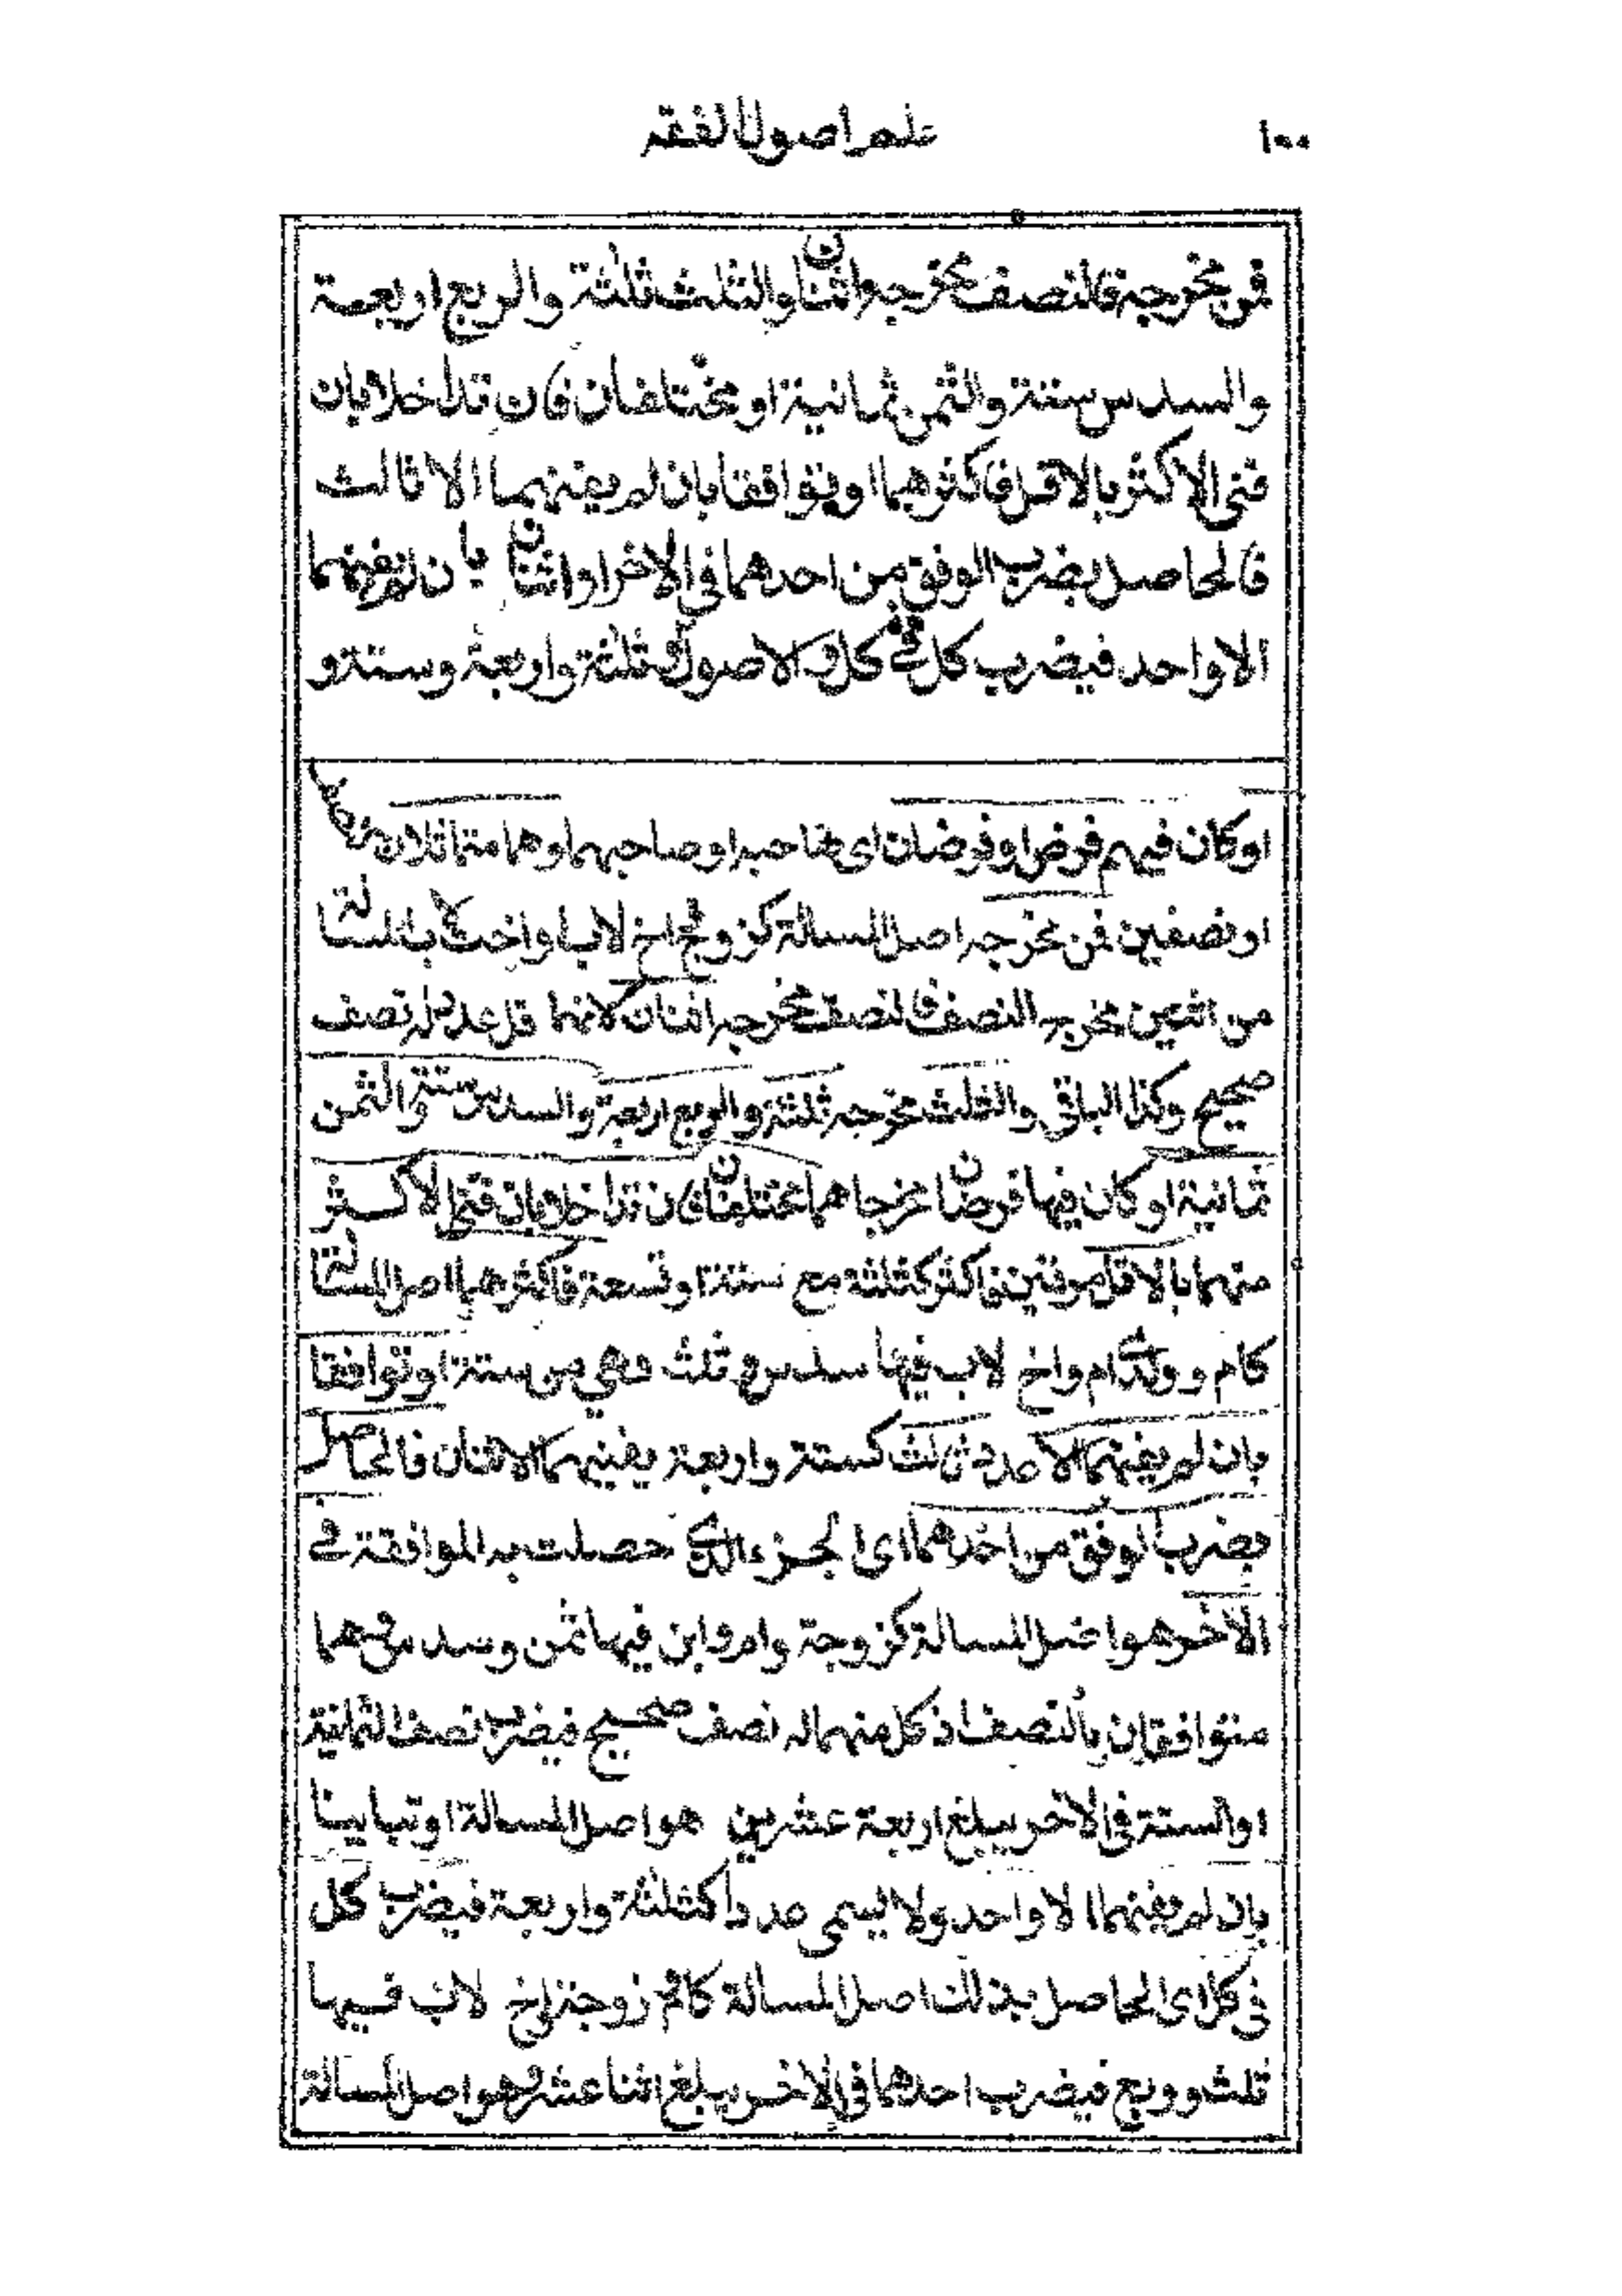 ١٠٠
علم اصول الفقه
فمن مخرجه فالنصف مخرجه اثنان والثلث ثلثة والربع اربعة
والسدس ستة والثمن ثمانية او مختلفان فان تداخلا بان
فنى الاكثر بالاقل فاكثرهما او توافقا بان لم يفنهما الا ثالث
فالحاصل بضرب الوفق من احدهما فى الاخر او اثنان بان لم يفنهما
الا واحد فيضرب كل فى كل والاصول ثلثة واربعة وستة و
او كان فيهم فرض او فرضان اى صاحبه او صاحبهما وهما متماثلان
او نصفين فمن مخرجه اصل المسالة كزوج واخ لاب واخت لاب المسالة
من اثنين مخرج النصف فالنصف مخرجه اثنان لانهما اقل عدد له نصف
صحيح وكذا الباقى والثلث مخرجه ثلثة والربع اربعة والسدس ستة والثمن
ثمانية او كان فيها فرضان مخرجاهما مختلفان فان تداخلا بان فنى الاكثر
منهما بالاقل مرتين فاكثر كثلثة مع ستة او تسعة فاكثرهما اصل المسالة
كام وولدى ام واخ لاب فيها سدس وثلث فهى من ستة او توافقا
بان لم يفنهما الا عدد ثالث كستة واربعة يفنيهما الاثنان فالحاصل
بضرب الوفق من احدهما اى الجزء الذى حصلت به الموافقة فى
الاخر هو اصل المسالة كزوجة وام وابن فيها ثمن وسدس هما
متوافقان بالنصف اذ كل منهما له نصف صحيح فيضرب نصف الثمانية
او الستة فى الاخر يبلغ اربعة عشرين هو اصل المسالة او تباينا
بان لم يفنهما الا واحد ولا يسمى عددا كثلثة واربعة فيضرب كل
فى كل اى الحاصل بذلك اصل المسالة كام وزوجة واخ لاب فيها
ثلث وربع فيضرب احدهما فى الاخر يبلغ اثنا عشر هو اصل المسالة